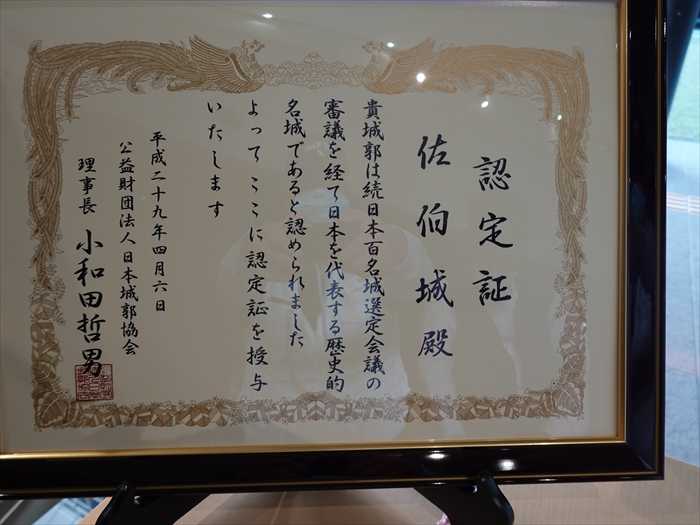 認定証
佐伯城殿
貴城郭は続日本百名城選定会議の
審議を経て日本を代表する歴史的
名城であると認められました
よってここに認定証を授与
いたします
平成二十九年四月六日
公益財団法人日本城郭協会
理事長 小和田哲男